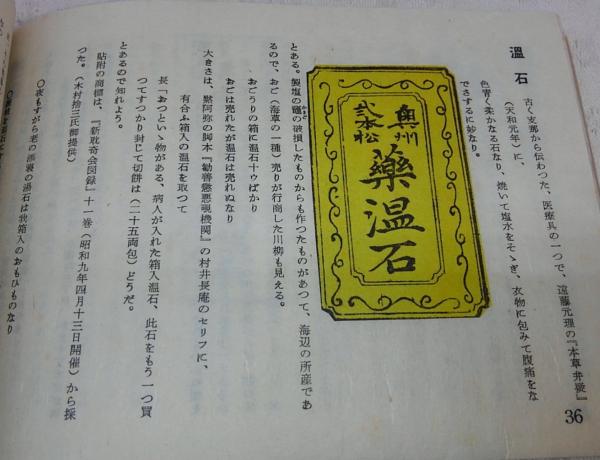 温石
古く支那から伝わつた、医療具の一つで、遠藤元理の『本草弁疑』
（天和元年）に、
色青く柔かなる石なり、焼いて塩水をそゝぎ、衣物に包みて腹痛をな
でさするに妙なり。
とある。製塩の竈の破損したものからも作つたものがあつて、海辺の所産であ
かまど
るので、おご（海草の一種）売りが行商した川柳も見える。
おごうりの箱に温石十ヲばかり
おごは売れたが温石は売れぬなり
大きさは、黙阿弥の脚本『勧善懲悪覗機関』の村井長庵のセリフに、
有合ふ箱入の温石を取つて
長「おつといゝ物がある、病人が入れた箱入温石、此石をもう一つ買
つてすつかり封じて切餅は（二十五両包）どうだ。
とあるので知れよう。
貼附の商標は、『新耽奇会図録』十一巻（昭和九年四月十三日開催）から採
つた。（木村捨三氏御提供）
○夜もすがら老の添寝の湯石は我箱入のおもひものなり
奥州
弐本松
薬温石
36